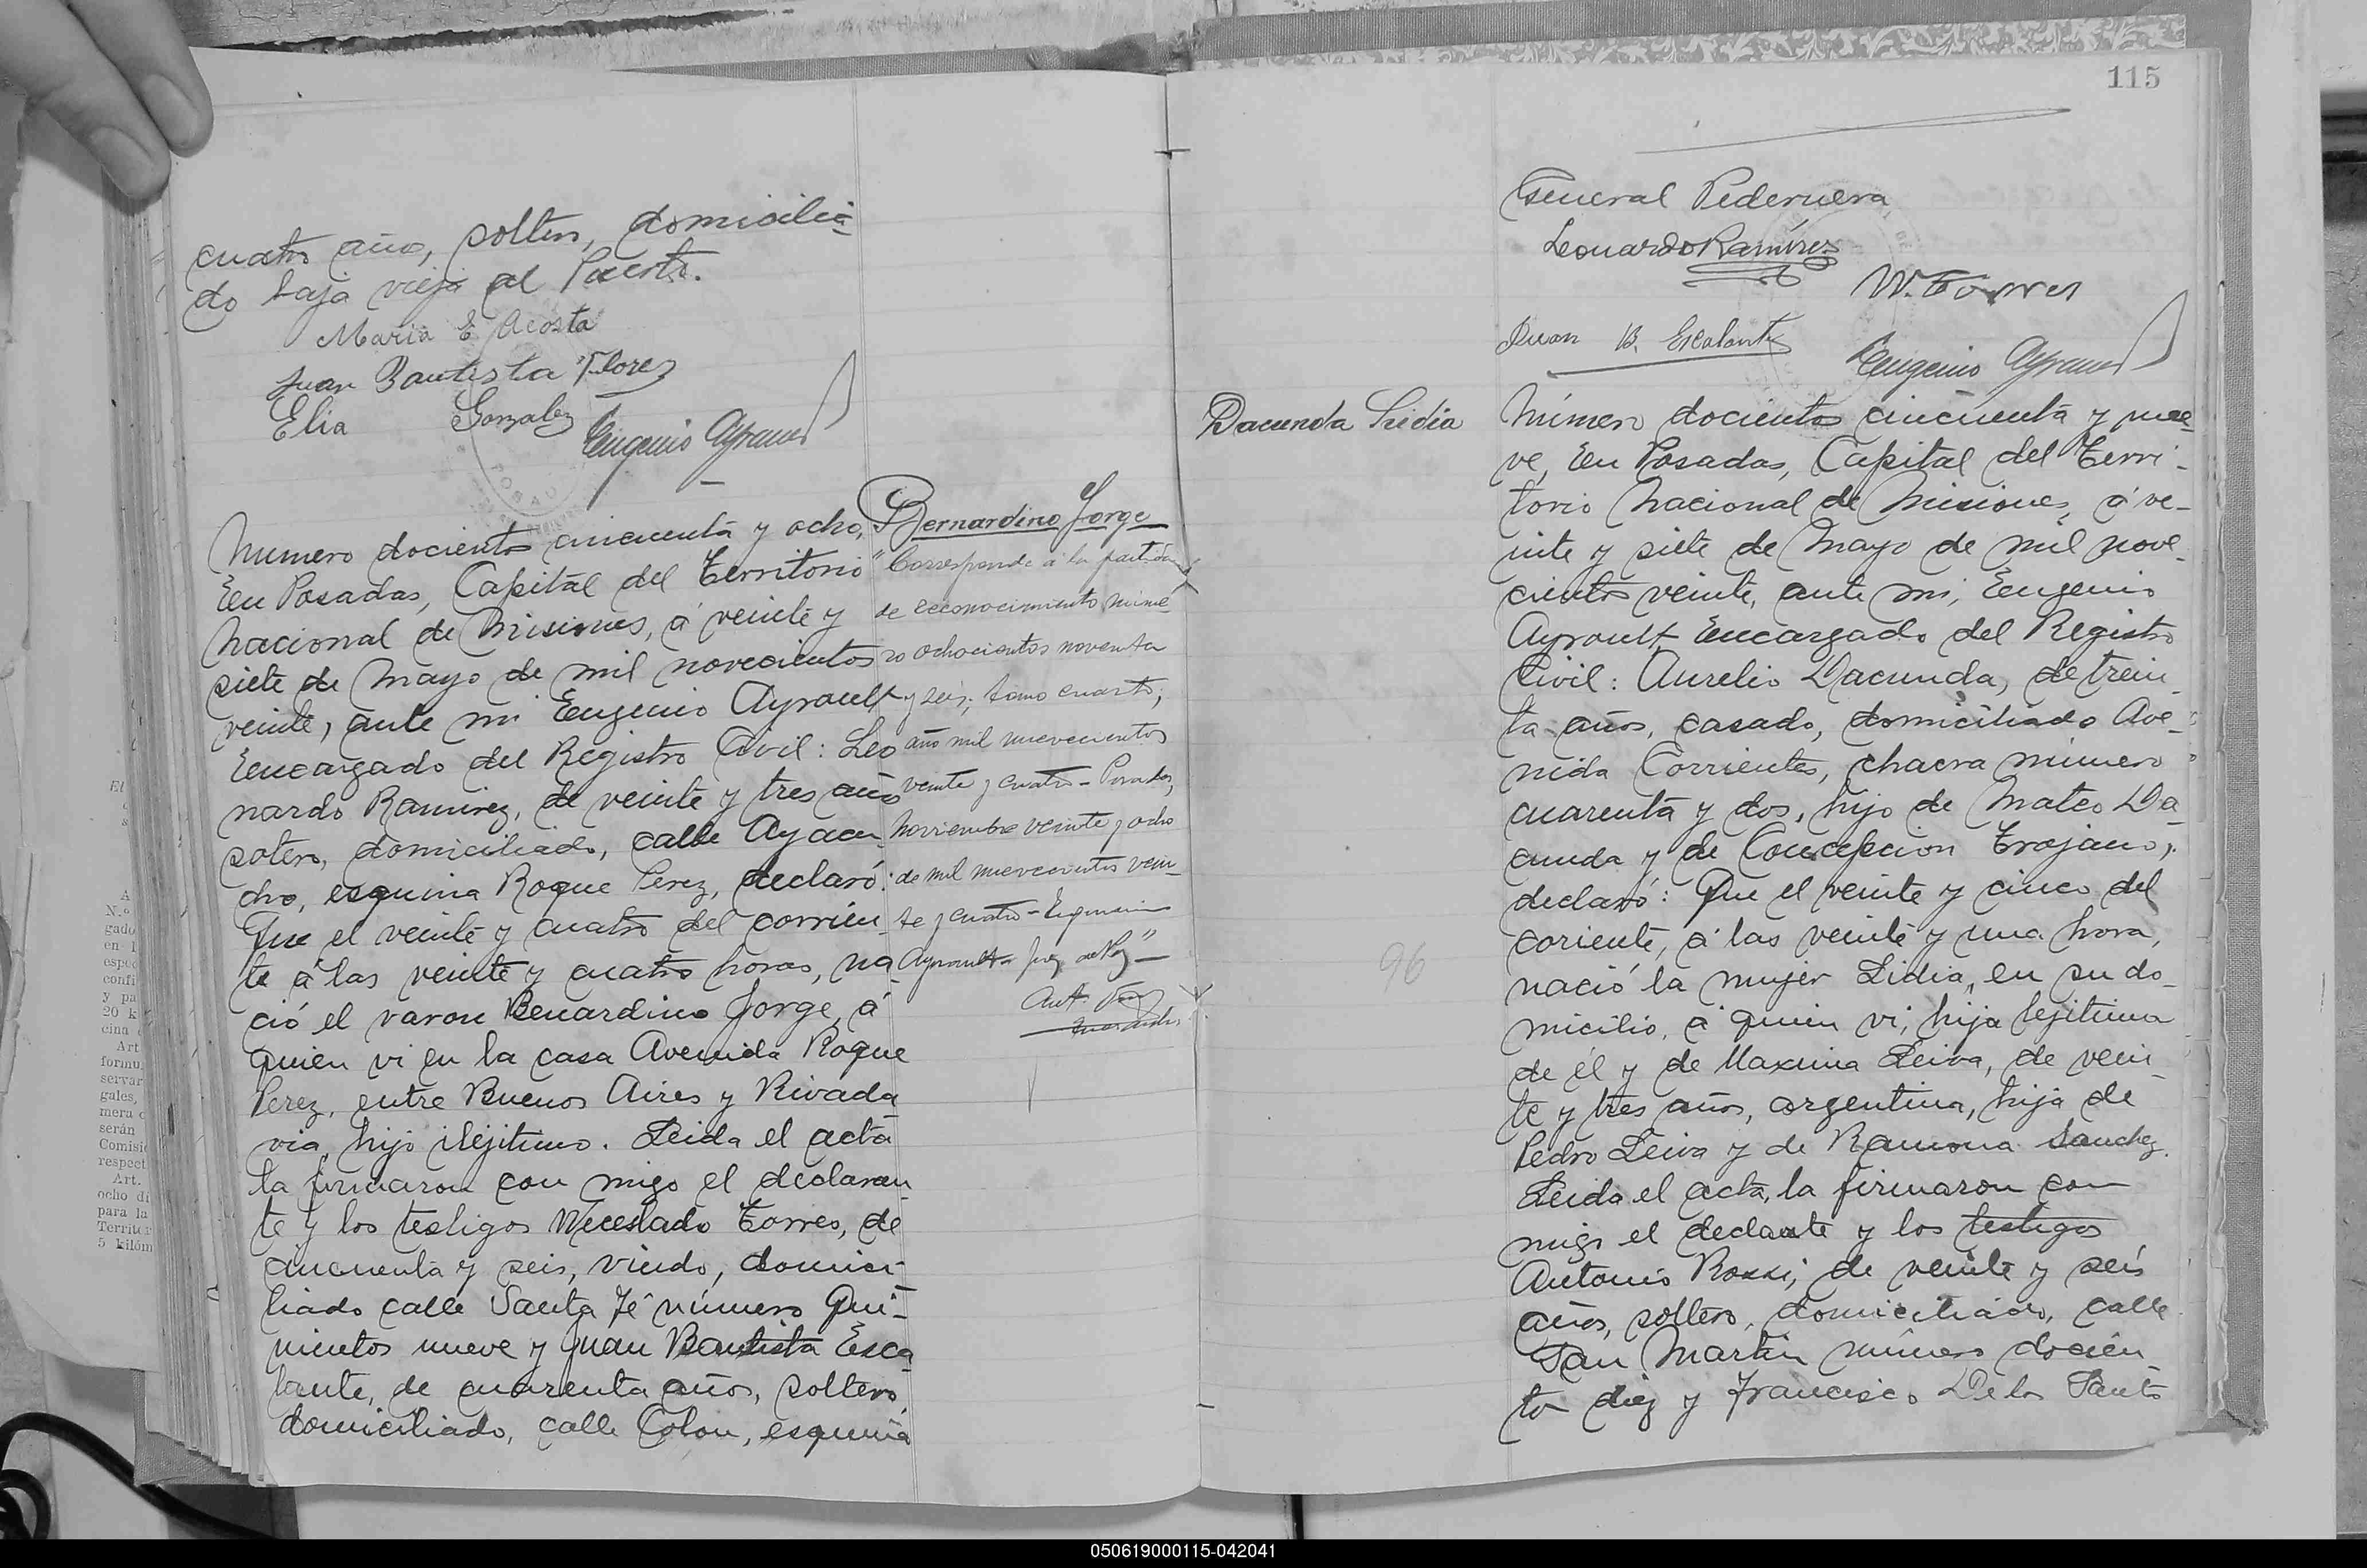 cuatro años, soltero, domicilia
do baja vieja al Puerto.
Maria E Acosta
Juan Bautista Flores
Elia Gonzalez
Eugenio Ayrault
Numero dociento cincuenta y ocho,
En Posadas, Capital del Territorio
Nacional de Misiones, á veinte y
siete de Mayo de mil novecientos
veinte, ante mi Eugenio Ayrault
Encargado del Registro Civil: Leo
nardo Ramirez, de veinte y tres años
sotero, domiciliado, calle Ayacu
cho, esquina Roque Perez, declaró:
Que el veinte y cuatro del corrien
te á las veinte y cuatro horas, na
ció el varon Benardino Jorge, á
quien vi en la casa Avenida Roque
Perez, entre Buenos Aires y Rivada
via, hijo ilejitimo. Leida el acta
la firmaron con migo el declaran
te y los testigos Weceslado Torres, de
cincuenta y seis, viudo, domici-
liado calle Santa Fé número Qui-
nientos nueve y Juan Bautista Esca
lante, de cuarenta años, soltero,
domiciliado, calle Colon, esquina
Bernardino Jorge
"Corresponde á la partida
de reconocimiento núme
ro ochocientos noventa
y seis; tomo cuarto,
año mil nuevecientos
veinte y cuatro - Posadas,
Noviembre veinte y ocho
de mil nuevecientos vein
te y cuatro - Eugenio
Ayrault Juez de Paz" -
115
General Pedernera
Leonardo Ramírez
W. Torres
Juan B. Escalante
Eugenio Ayrault
Dacunda Lidia
Número dociento cincuenta y nue
ve, En Posadas, Capital del Terri-
torio Nacional de Misiones, á ve-
inte y siete de Mayo de mil nove-
cientos veinte, ante mi, Eugenio
Ayrault, Encargado del Registro
Civil: Aurelio Dacunda, de trein
ta años, casado, domiciliado Ave-
nida Corrientes, chacra número
cuarenta y dos, hijo de Mateo Da
cunda y de Concepcion Trojano,
declaró: Que el veinte y cinco del
coriente, á las veinte y una hora,
nació la mujer Lidia, en su do-
micilio, á quien vi, hija lejitima
de él y de Maxima Leiva, de vein-
te y tres años, argentina, hija de
Pedro Leiva y de Ramona Sanchez.
Leida el acta, la firmaron con
migo el declante y los testigos
Antonio Rossi, de veinte y seis
años, soltero, domiciliado, calle
San Martin número docien
to diez y Francisco De los Santo
96
050619000115-042041